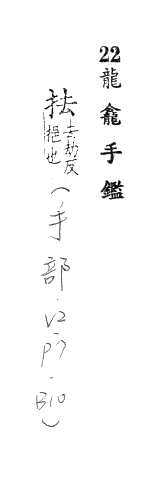 22 龍龕手鑑
抾去劫反挹也(手部.V2.P7.B10)